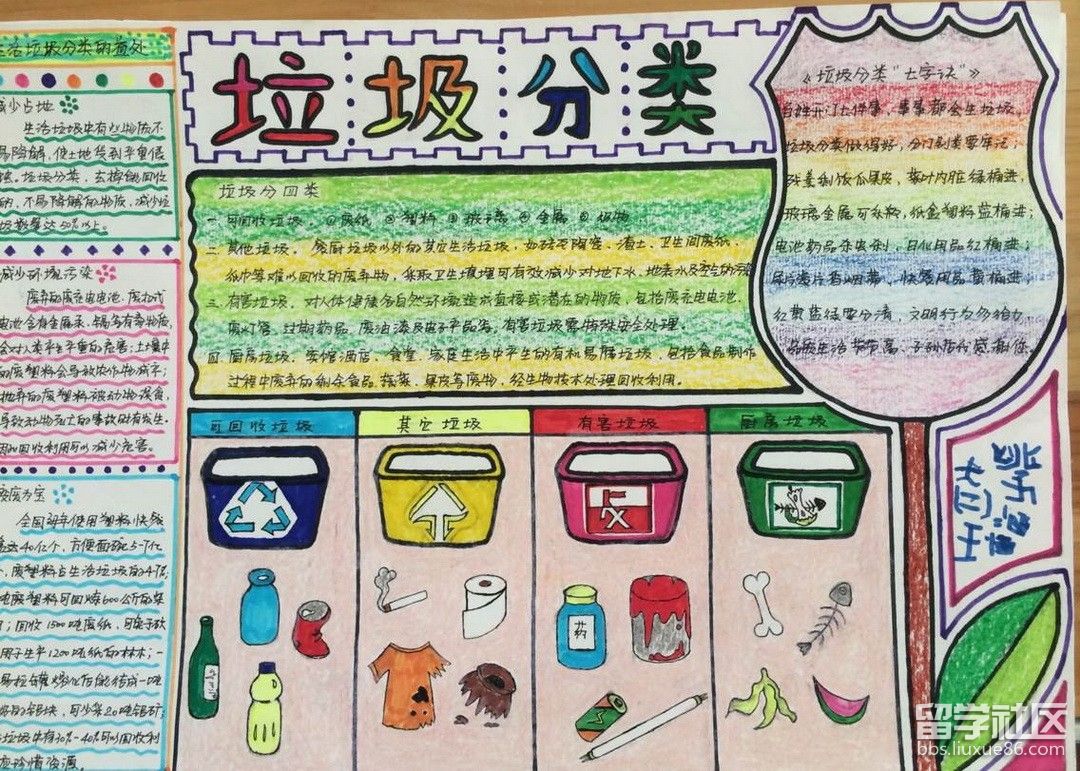 生活垃圾分类的好处
减少占地
生活垃圾中有些物质不
易降解,使土地受到严重侵
蚀。垃圾分类,去掉能回收
的、不易降解的物质,减少垃
圾数量达50%以上。
减少环境污染
废弃的废充电电池、废扣式
电池含有金属汞、镉等有毒物质,
会对人类产生严重的危害;土壤中
的废塑料会导致农作物减产;
抛弃的废塑料被动物误食,
导致动物死亡的事故时有发生。
因回收利用可以减少危害。
变废为宝
全国每年使用塑料快餐
盒达40亿个,方便面碗5-7亿
废塑料占生活垃圾的4-7%
吨废塑料可回炼600公斤的柴
;回收1500吨废纸,可免于砍
用于生产1200吨纸的林木;一
易拉罐熔化后能结成一吨
好的铝块,可少采20吨铝矿;
垃圾中有30%-40%可以回收利
应珍惜资源。
垃圾分类
垃圾分四类
一. 可回收垃圾. ①废纸 ②塑料 ③玻璃 ④金属 ⑤布物
二. 其他垃圾. 餐厨垃圾以外的其它生活垃圾,如砖瓦陶瓷、渣土、卫生间废纸、
纸巾等难以回收的废弃物,采取卫生填埋可有效减少对地下水、地表水及空气的污染
三. 有害垃圾. 对人体健康或自然环境造成直接或潜在的物质,包括废充电电池、
废灯管、过期药品、废油漆及电子产品等,有害垃圾需特殊安全处理。
四. 厨房垃圾. 宾馆、酒店、食堂、家庭生活中产生的有机易腐垃圾,包括食品制作
过程中废弃的剩余食品、蔬菜、果皮等废物,经生物技术处理回收利用。
《垃圾分类“七字诀”》
开门七件事,事事都会生垃圾,
垃圾分类做得好,分门别类要牢记;
残羹剩饭瓜果皮,菜叶内脏绿桶进,
玻璃金属可乐料,纸盒塑料蓝桶进;
电池药品杀虫剂,日化用品红桶进;
尿片卷片有烟蒂,快餐用品黄桶进,
红黄蓝绿要分清,文明行为勿怕力,
可回收垃圾
其它垃圾
有害垃圾
厨房垃圾
药
留学社区
bbs.liuxue86.com